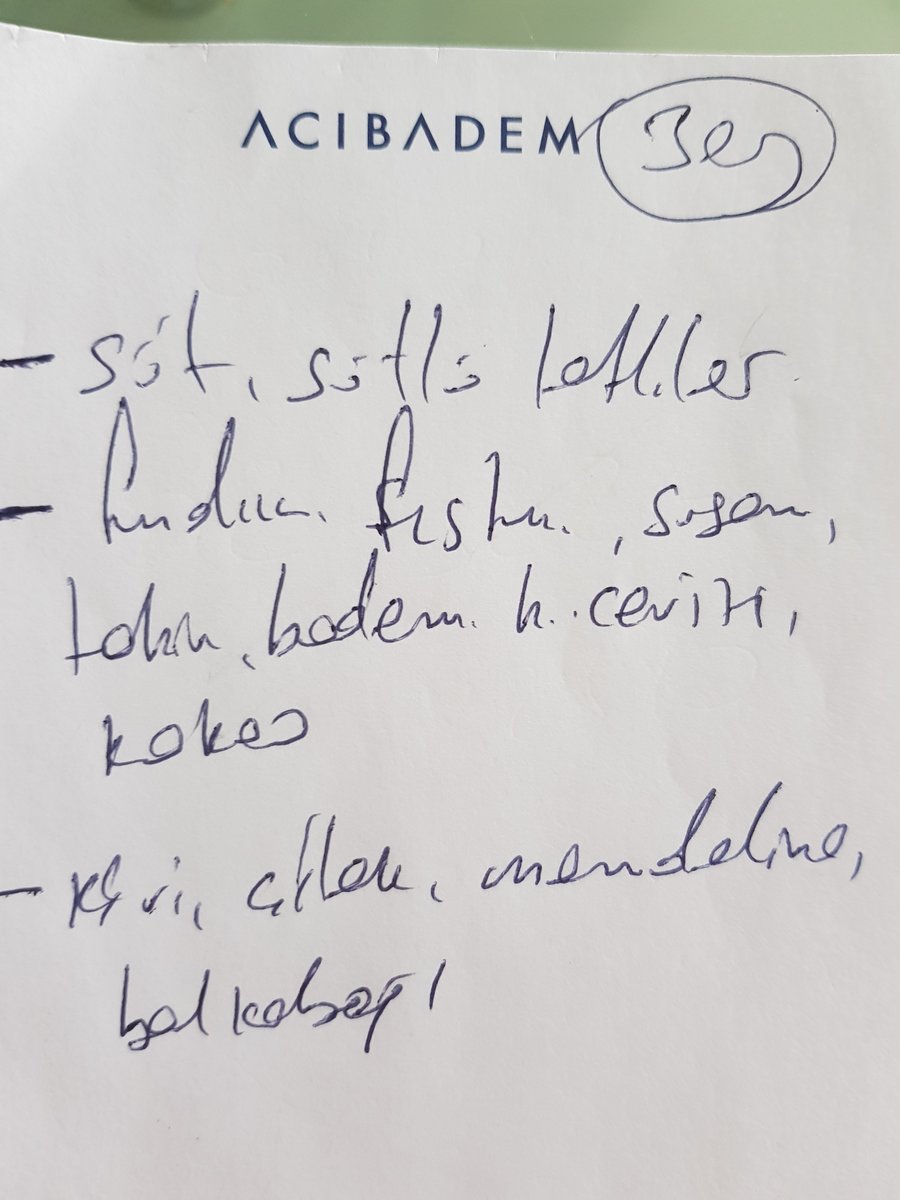 ACIBADEM
- süt, sütlü tatlılar
- fındık, fıstık, susam,
tahin, badem, h. cevizi,
kakao
- Kivi, çilek, mandalina,
balkabağı